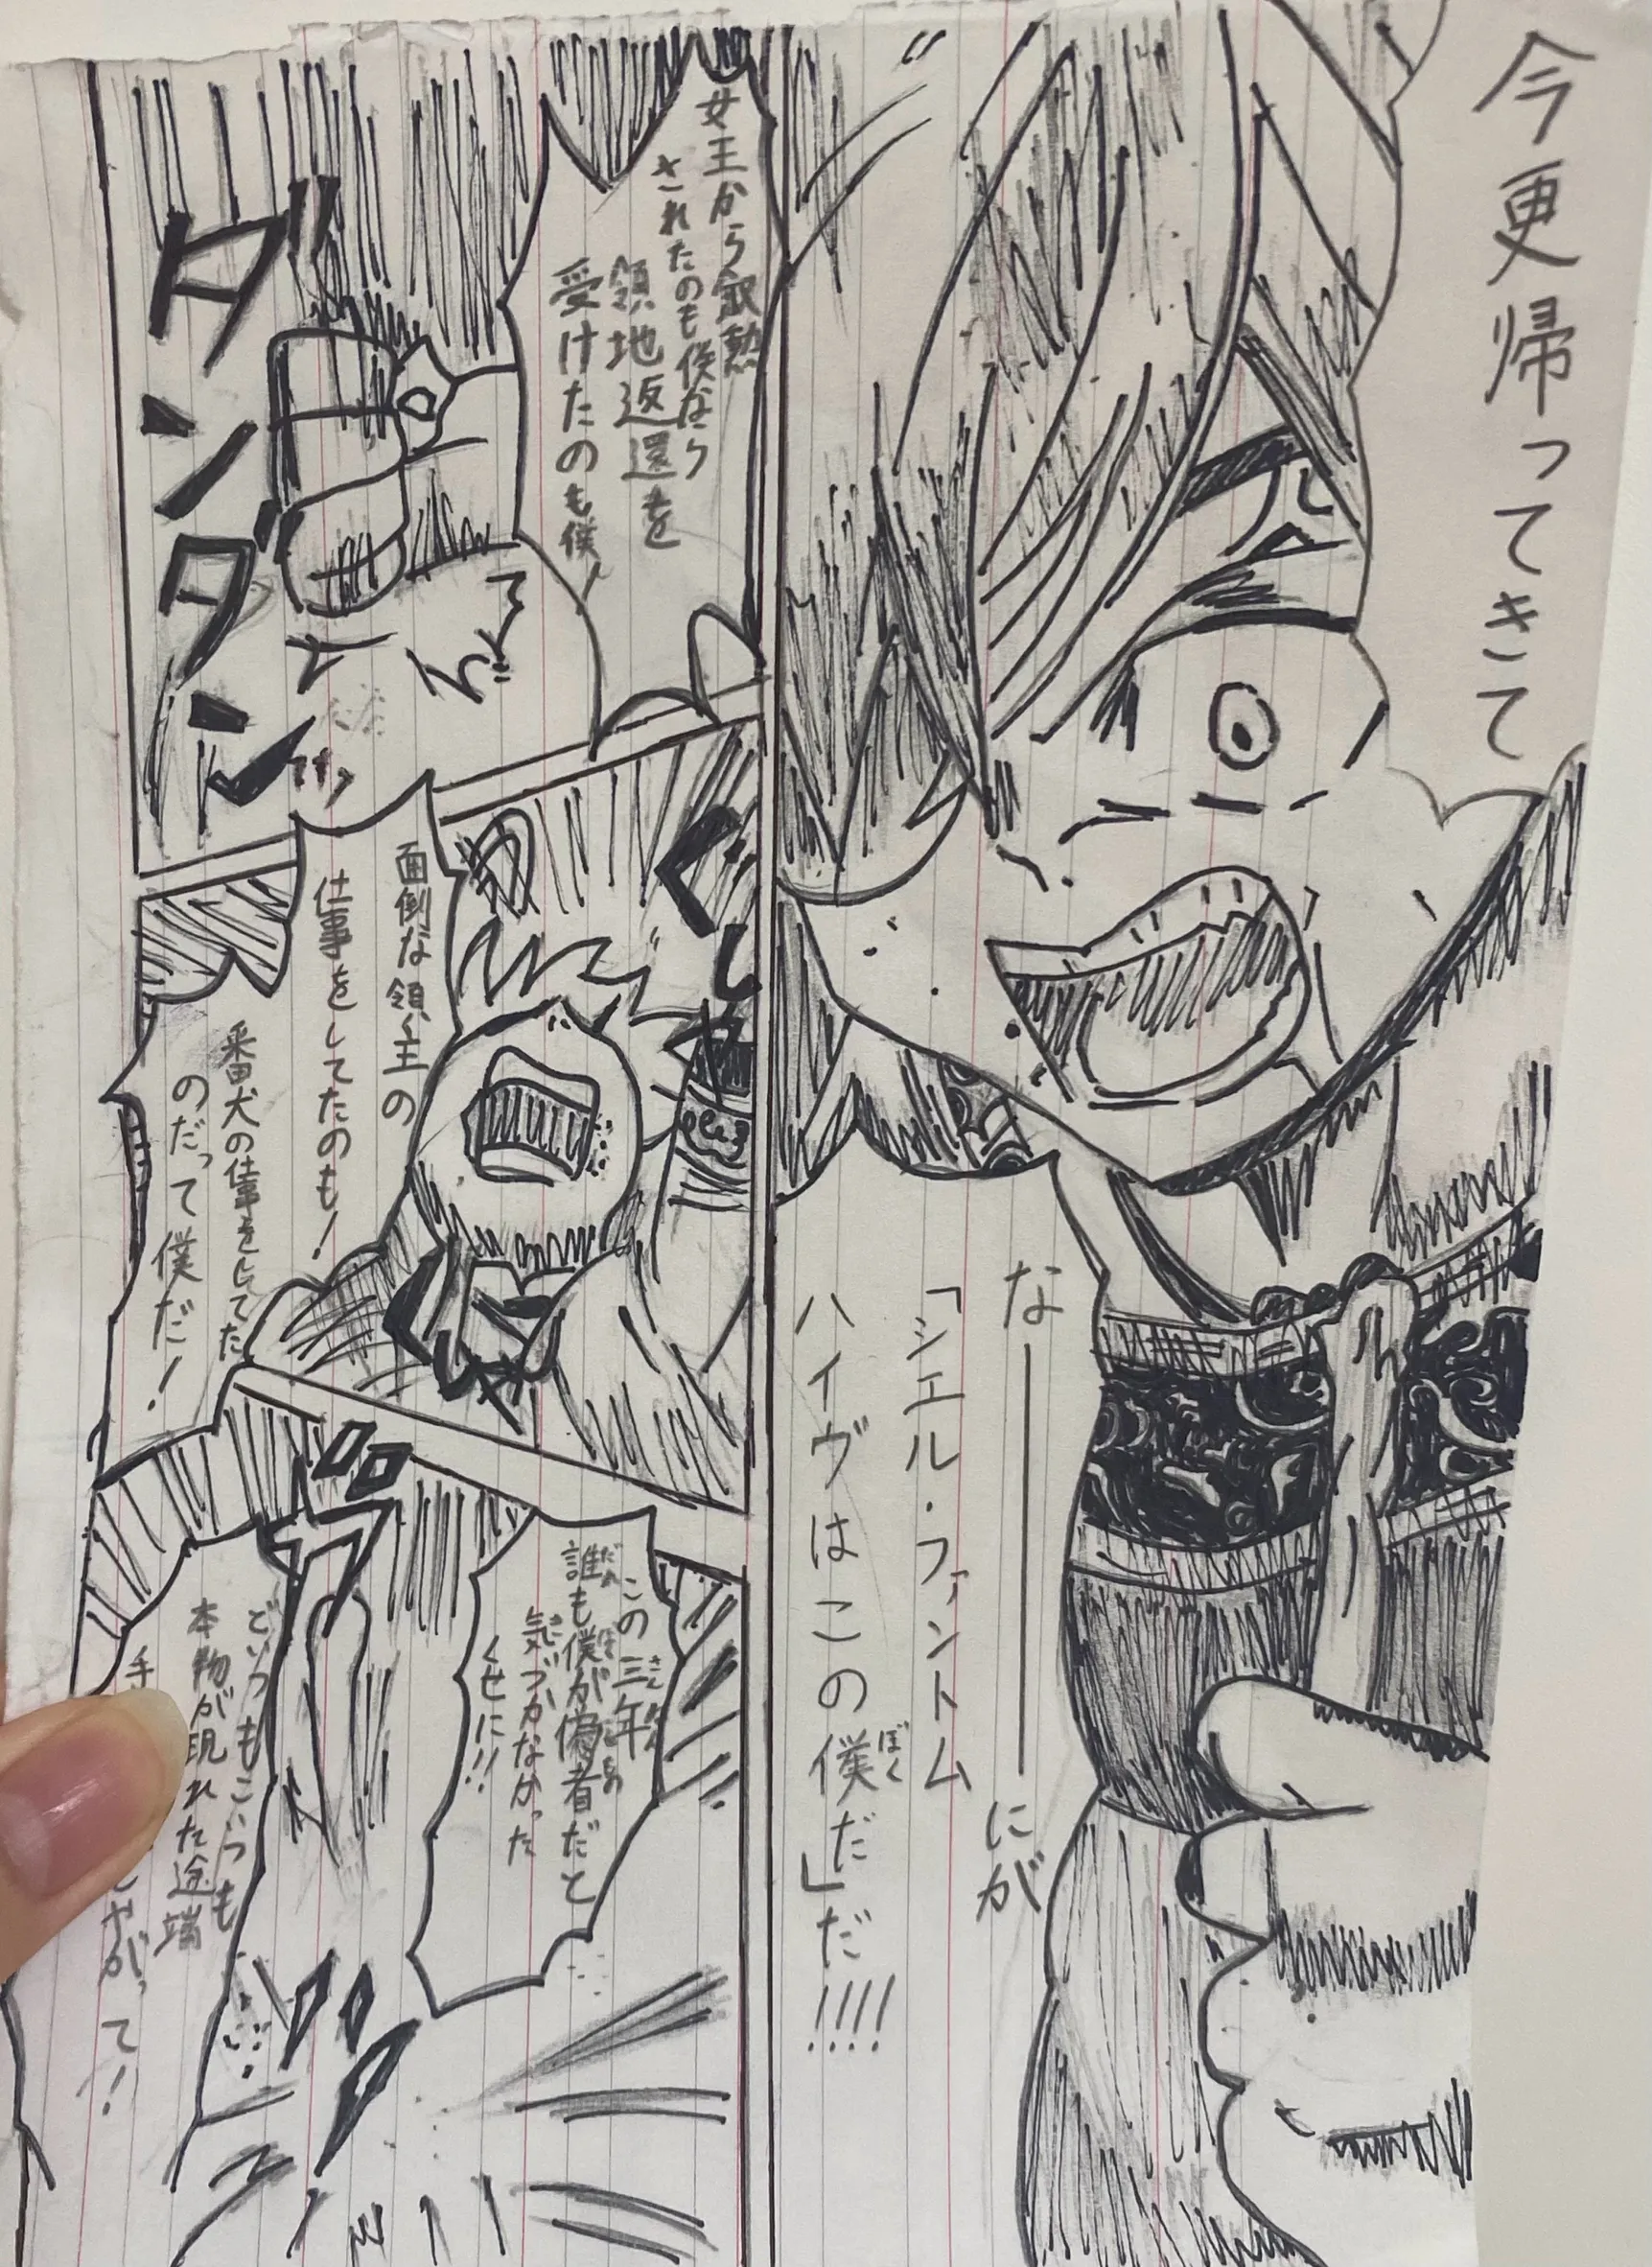 女王から叙勲
されたのも僕なら
領地返還を
受けたのも僕！
ダンダン
面倒な領主の
仕事をしてたのも！
番犬の仕事をしてた
のだって僕だ！
ぐし
この三年
誰も僕が偽者だと
気づかなかった
くせに!!
どいつもこいつも
本物が現れた途端
手
やがって！
今更帰ってきて
な──にが
「シエル・ファントム
ハイヴはこの僕だ」だ!!!!